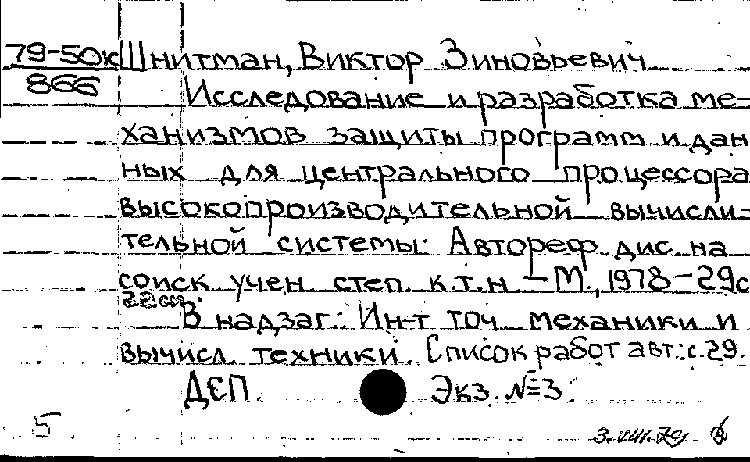 79-50к Шнитман, Виктор Зиновьевич
866 Исследование и разработка ме-
ханизмов защиты программ и дан
ных для центрального процессора
высокопроизводительной вычисли-
тельной системы: Автореф. дис. на
соиск учен степ. к.т.н — М., 1978 - 29с
22см.
В надзаг.: Ин-т точ механики и
вычисл. техники. Список работ авт.: с.29.
ДСП. Экз. №3.
5 3.VIII.79